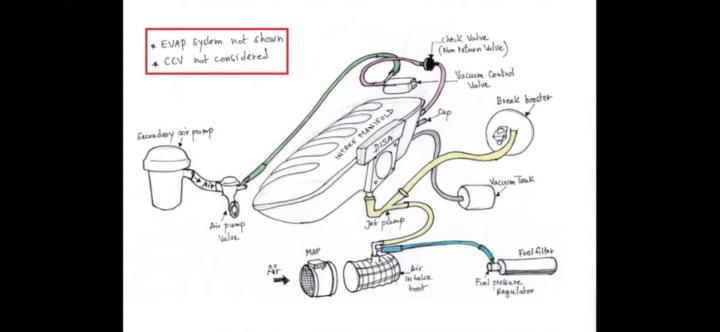 * EVAP system not shown
* CCV not considered
check Valve
(Non return Valve)
Vacuum Control
Valve
Cap
Break booster
Secondary air pump
INTAKE MANIFOLD
DISA
→ Air
Air pump
Valve
Jet pump
Vacuum Tank
MAF
Air
Air
Intake
boot
Fuel filter
Fuel pressure
Regulator